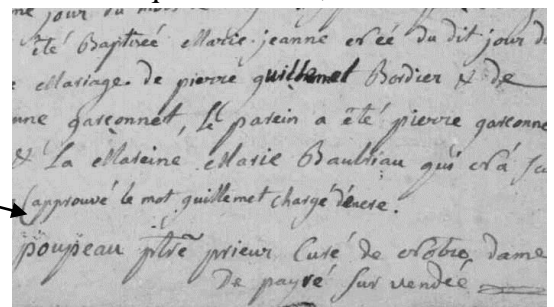 jour du mois de
été Baptizée Marie jeanne née du dit jour du
Mariage de pierre guillemet Bordier & de
garconnet, Le parein a été pierre garconne
& La Mareine Marie Baubriau qui n'a
(approuvé le mot guillemet chargé d'encre.
poupeau ptre prieur Curé de notre dame
De payré sur vendée